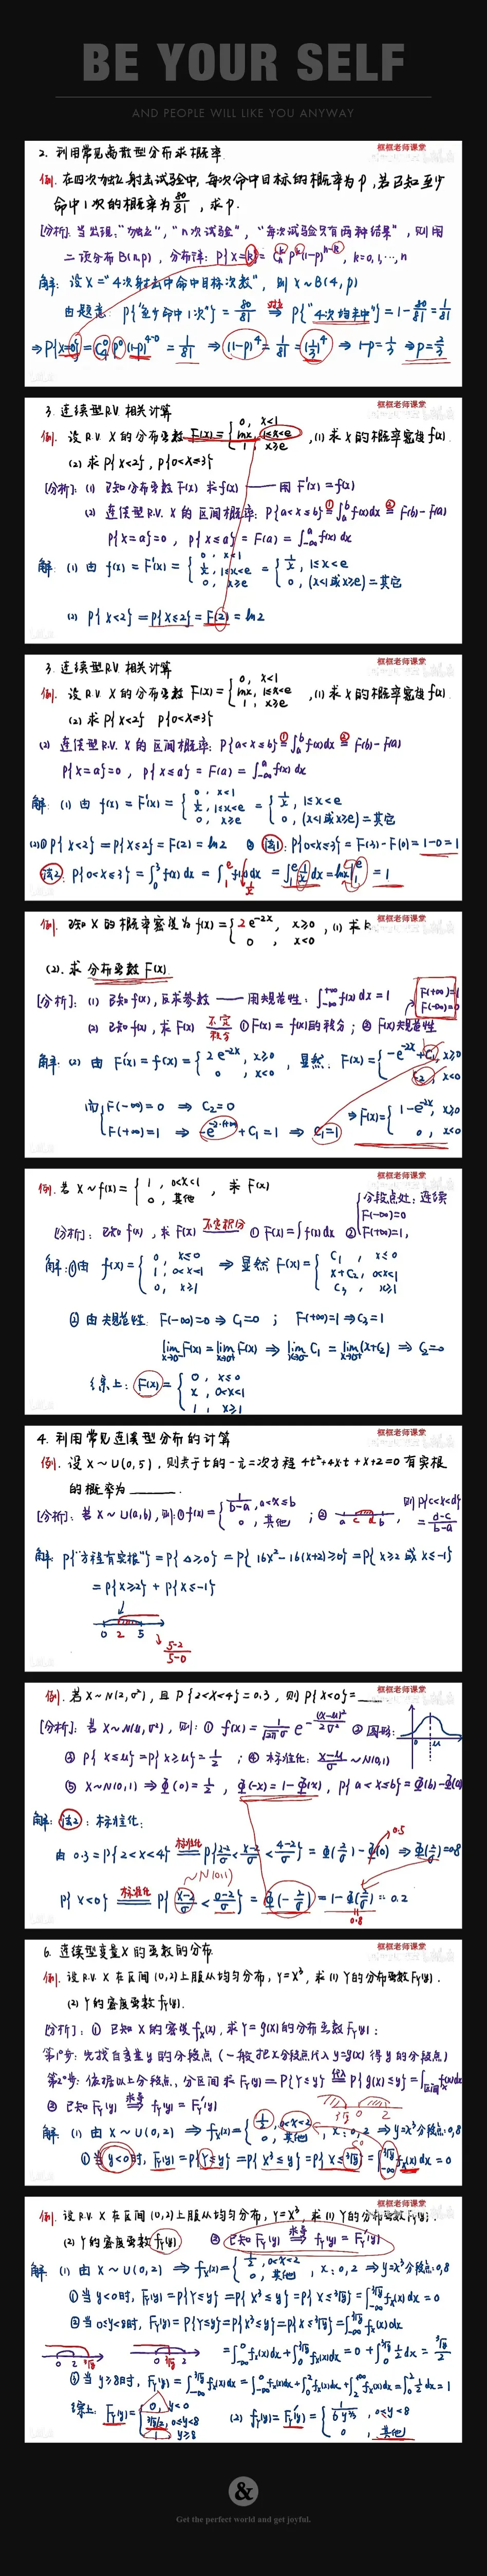 BE YOUR SELF
AND PEOPLE WILL LIKE YOU ANYWAY
框框老师课堂
2. 利用常见离散型分布求概率
例. 在四次独立射击试验中, 每次命中目标的概率为p, 若已知至少
命中1次的概率为 80/81, 求p.
[分析] 当出现:“独立”, “n次试验”, “每次试验只有两种结果”, 则用
二项分布B(n,p), 分布律: P{X=k}=C_n^k p^k (1-p)^{n-k}, k=0,1,…,n
解: 设X=“4次射击中命中目标次数”, 则 X~B(4,p)
由题意: P{“至少命中1次”}=80/81 ⇒ P{“4次均未中”}=1-80/81=1/81
⇒P{X=0}=C_4^0 p^0 (1-p)^{4-0}=1/81 ⇒ (1-p)^4=1/81=(1/3)^4 ⇒ 1-p=1/3 ⇒p=2/3
框框老师课堂
3. 连续型R.V. 相关计算
例. 设 R.V. X 的分布函数 F(x)={0, x<1; lnx, 1≤x<e; 1, x≥e ,(1) 求X的概率密度f(x).
(2) 求P{X<2}, P{0<X≤3}
[分析]: (1) 已知分布函数F(x) 求f(x) —— 用 F'(x)=f(x)
(2) 连续型R.V. X 的 区间概率: P{a<X≤b} ①= ∫_a^b f(x)dx ②= F(b)-F(a)
P{X=a}=0, P{X≤a}=F(a)=∫_{-∞}^a f(x)dx
解: (1) 由 f(x)=F'(x)={0, x<1; 1/x, 1≤x<e; 0, x≥e ={1/x, 1≤x<e; 0, (x<1或x≥e)=其它
(2) P{X<2}=P{X≤2}=F(2)=ln2
框框老师课堂
3. 连续型R.V. 相关计算
例. 设 R.V. X 的分布函数 F(x)={0, x<1; lnx, 1≤x<e; 1, x≥e ,(1) 求X的概率密度f(x).
(2) 求P{X<2} P{0<X≤3}
(2) 连续型R.V. X 的 区间概率: P{a<X≤b} ①= ∫_a^b f(x)dx ②= F(b)-F(a)
P{X=a}=0, P{X≤a}=F(a)=∫_{-∞}^a f(x)dx
解: (1) 由 f(x)=F'(x)={0, x<1; 1/x, 1≤x<e; 0, x≥e ={1/x, 1≤x<e; 0, (x<1或x≥e)=其它
(2)① P{X<2}=P{X≤2}=F(2)=ln2 ② 法1: P{0<X≤3}=F(3)-F(0)=1-0=1
法2: P{0<X≤3}=∫_0^3 f(x)dx=∫_1^e f(x)dx=∫_1^e 1/x dx=lnx|_1^e=1
框框老师课堂
例. 已知 X 的概率密度为 f(x)={2e^{-2x}, x≥0; 0, x<0 ,(1) 求k
(2). 求 分布函数F(x).
[分析]: (1) 已知f(x), 反求参数 —— 用规范性: ∫_{-∞}^{+∞} f(x)dx=1
F(+∞)=1
F(-∞)=0
(2) 已知f(x), 求F(x) 不定积分 ①F(x)=f(x)的积分; ②F(x)规范性
解: (2) 由 F'(x)=f(x)={2e^{-2x}, x≥0; 0, x<0 , 显然: F(x)={-e^{-2x}+C1, x≥0; C2, x<0
而{F(-∞)=0 ⇒ C2=0
F(+∞)=1 ⇒ -e^{-2·(+∞)}+C1=1 ⇒ C1=1
⇒F(x)={1-e^{-2x}, x≥0; 0, x<0
框框老师课堂
例. 若 X~f(x)={1, 0<x<1; 0, 其他 , 求 F(x)
[分析]: 已知f(x), 求F(x) 不定积分 ①F(x)=∫f(x)dx ②{分段点处: 连续; F(-∞)=0; F(+∞)=1,
解:①由 f(x)={0, x≤0; 1, 0<x<1; 0, x≥1 ⇒ 显然F(x)={C1, x≤0; x+C2, 0<x<1; C3, x≥1
② 由规范性. F(-∞)=0 ⇒ C1=0 ; F(+∞)=1 ⇒ C3=1
lim_{x→0-} F(x)=lim_{x→0+} F(x) ⇒ lim_{x→0-} C1=lim_{x→0+}(x+C2) ⇒ C2=0
综上: F(x)={0, x≤0; x, 0<x<1; 1, x≥1
框框老师课堂
4. 利用常见连续型分布的计算
例. 设 X~U(0,5), 则关于t的一元二次方程 4t²+4xt+x+2=0 有实根
的概率为______.
[分析]: 若 X~U(a,b), 则:①f(x)={1/(b-a), a<x≤b; 0, 其他 ; ② a c d b, 则P{c<X<d}=(d-c)/(b-a)
解: P{“方程有实根”}=P{Δ≥0}=P{16X²-16(X+2)≥0}=P{X≥2 或 X≤-1}
=P{X≥2}+P{X≤-1}
0 2 5
(5-2)/(5-0)
框框老师课堂
例. 若X~N(2,σ²), 且 P{2<X<4}=0.3, 则 P{X<0}=____
[分析]: 若 X~N(μ,σ²), 则: ① f(x)=1/(√2π σ) e^{-(x-μ)²/2σ²} ② 图形: 0 μ
③ P{X≤μ}=P{X≥μ}=1/2 ; ④ 标准化: (X-μ)/σ ~N(0,1)
⑤ X~N(0,1) ⇒ Φ(0)=1/2, Φ(-x)=1-Φ(x), P{a<X≤b}=Φ(b)-Φ(a)
解: 法2: 标准化:
由 0.3=P{2<X<4} 标准化 P{(2-2)/σ<(X-2)/σ<(4-2)/σ}=Φ(2/σ)-Φ(0) ⇒ Φ(2/σ)=0.8
0.5
~N(0,1)
P{X<0} 标准化 P{(X-2)/σ<(0-2)/σ}=Φ(-2/σ)=1-Φ(2/σ)=0.2
0.8
框框老师课堂
6. 连续型变量X的函数的分布
例. 设 R.V. X 在区间(0,2)上服从均匀分布, Y=X³, 求 (1) Y的分布函数F_Y(y).
(2) Y的密度函数f_Y(y).
[分析]: ① 已知 X的密度f_X(x), 求Y=g(X)的分布函数F_Y(y):
第1步: 先找自变量y的分段点 (一般把X分段点代入y=g(x) 得y的分段点)
第2步: 依据以上分段点, 分区间求 F_Y(y)=P{Y≤y}=P{g(X)≤y}=∫_{区间} f_X(x)dx
② 已知F_Y(y) 求导⇒ f_Y(y)=F_Y'(y)
解: (1) 由 X~U(0,2) ⇒ f_X(x)={1/2, 0<x<2; 0, 其他 , x: 0,2 ⇒ y=x³分段点: 0,8
①当 y<0时, F_Y(y)=P{Y≤y}=P{X³≤y}=P{X≤∛y}=∫_{-∞}^{∛y} f_X(x)dx=0
框框老师课堂
例. 设 R.V. X 在区间(0,2)上服从均匀分布, Y=X³, 求 (1) Y的分布函数F_Y(y).
(2) Y的密度函数f_Y(y) ②已知F_Y(y) 求导⇒ f_Y(y)=F_Y'(y)
解: (1) 由 X~U(0,2) ⇒ f_X(x)={1/2, 0<x<2; 0, 其他 , x: 0,2 ⇒ y=x³分段点: 0,8
①当 y<0时, F_Y(y)=P{Y≤y}=P{X³≤y}=P{X≤∛y}=∫_{-∞}^{∛y} f_X(x)dx=0
②当 0≤y<8时, F_Y(y)=P{Y≤y}=P{X³≤y}=P{X≤∛y}=∫_{-∞}^{∛y} f_X(x)dx
=∫_{-∞}^0 f_X(x)dx+∫_0^{∛y} f_X(x)dx=0+∫_0^{∛y} 1/2 dx=∛y/2
0 2 ∛y
0 ∛y 2
③当 y≥8时, F_Y(y)=∫_{-∞}^{∛y} f_X(x)dx=∫_{-∞}^0 f_X(x)dx+∫_0^2 f_X(x)dx+∫_2^{+∞} f_X(x)dx=∫_0^2 1/2 dx=1
综上: F_Y(y)={0, y<0; ∛y/2, 0≤y<8; 1, y≥8 (2) f_Y(y)=F_Y'(y)={1/(6y^{2/3}), 0≤y<8; 0, 其他
&
Get the perfect world and get joyful.